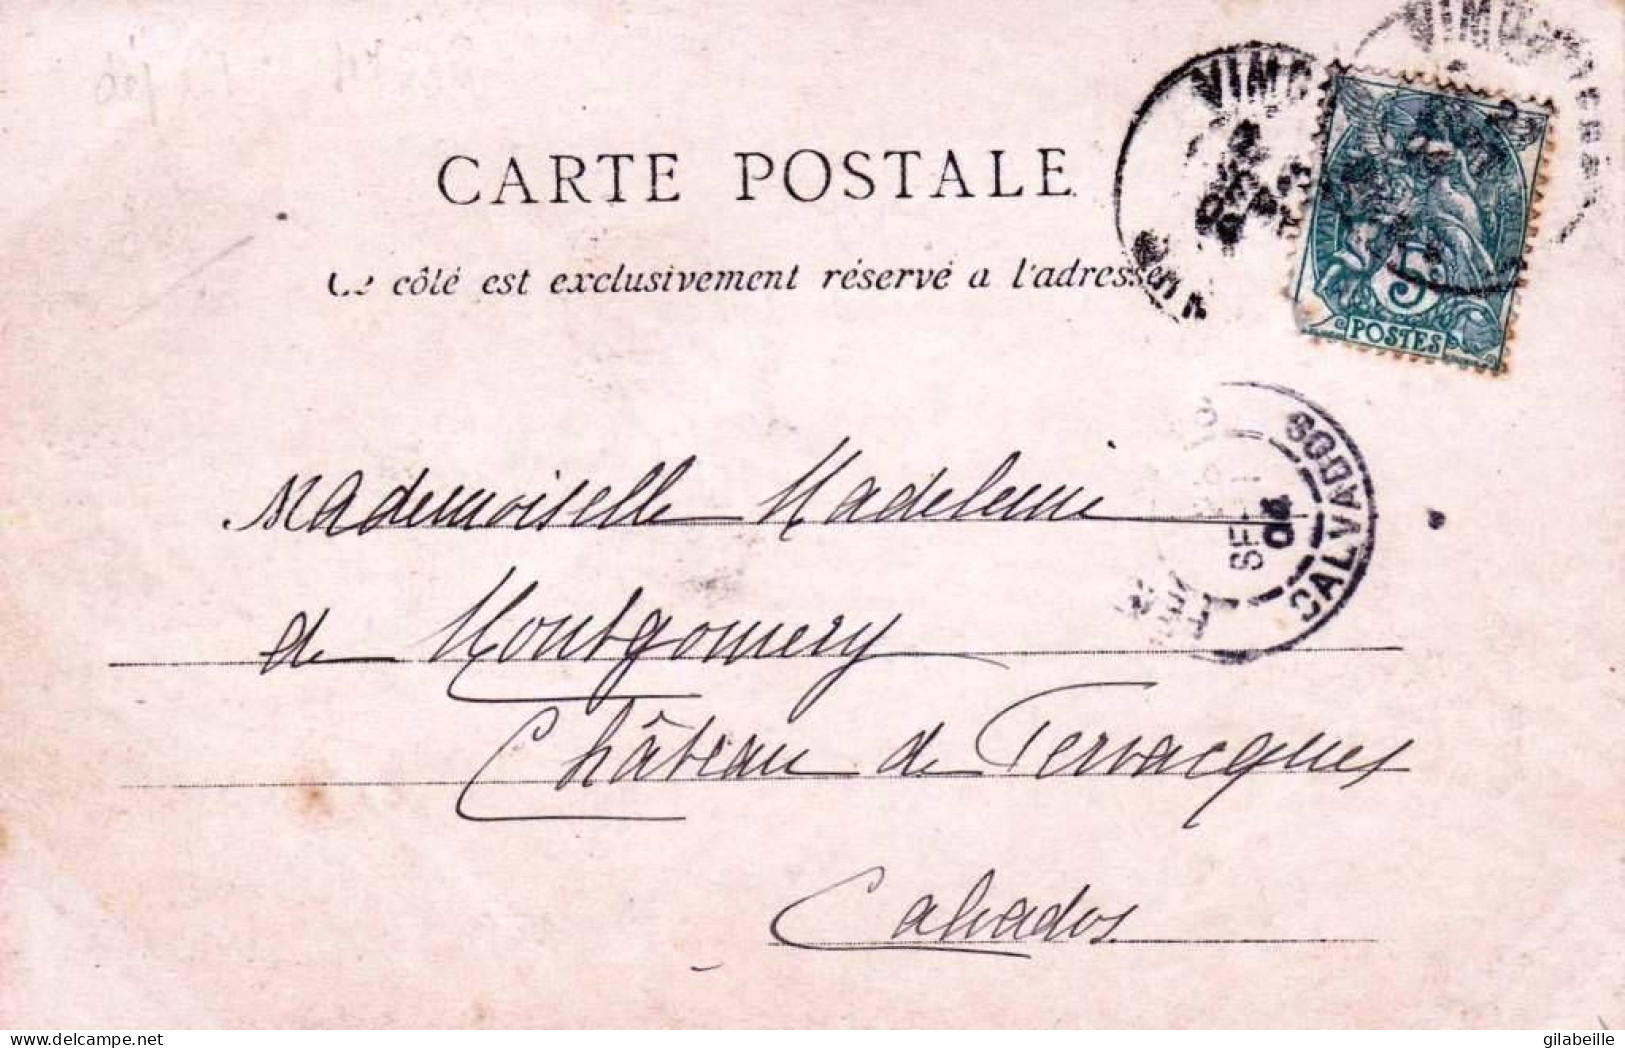 CARTE POSTALE
Ce côté est exclusivement réservé a l'adresse
5
POSTES
CALVADOS
SE
04
Mademoiselle Madeleine
de Montgomery
Château de Fervacques
Calvados
gilabeille